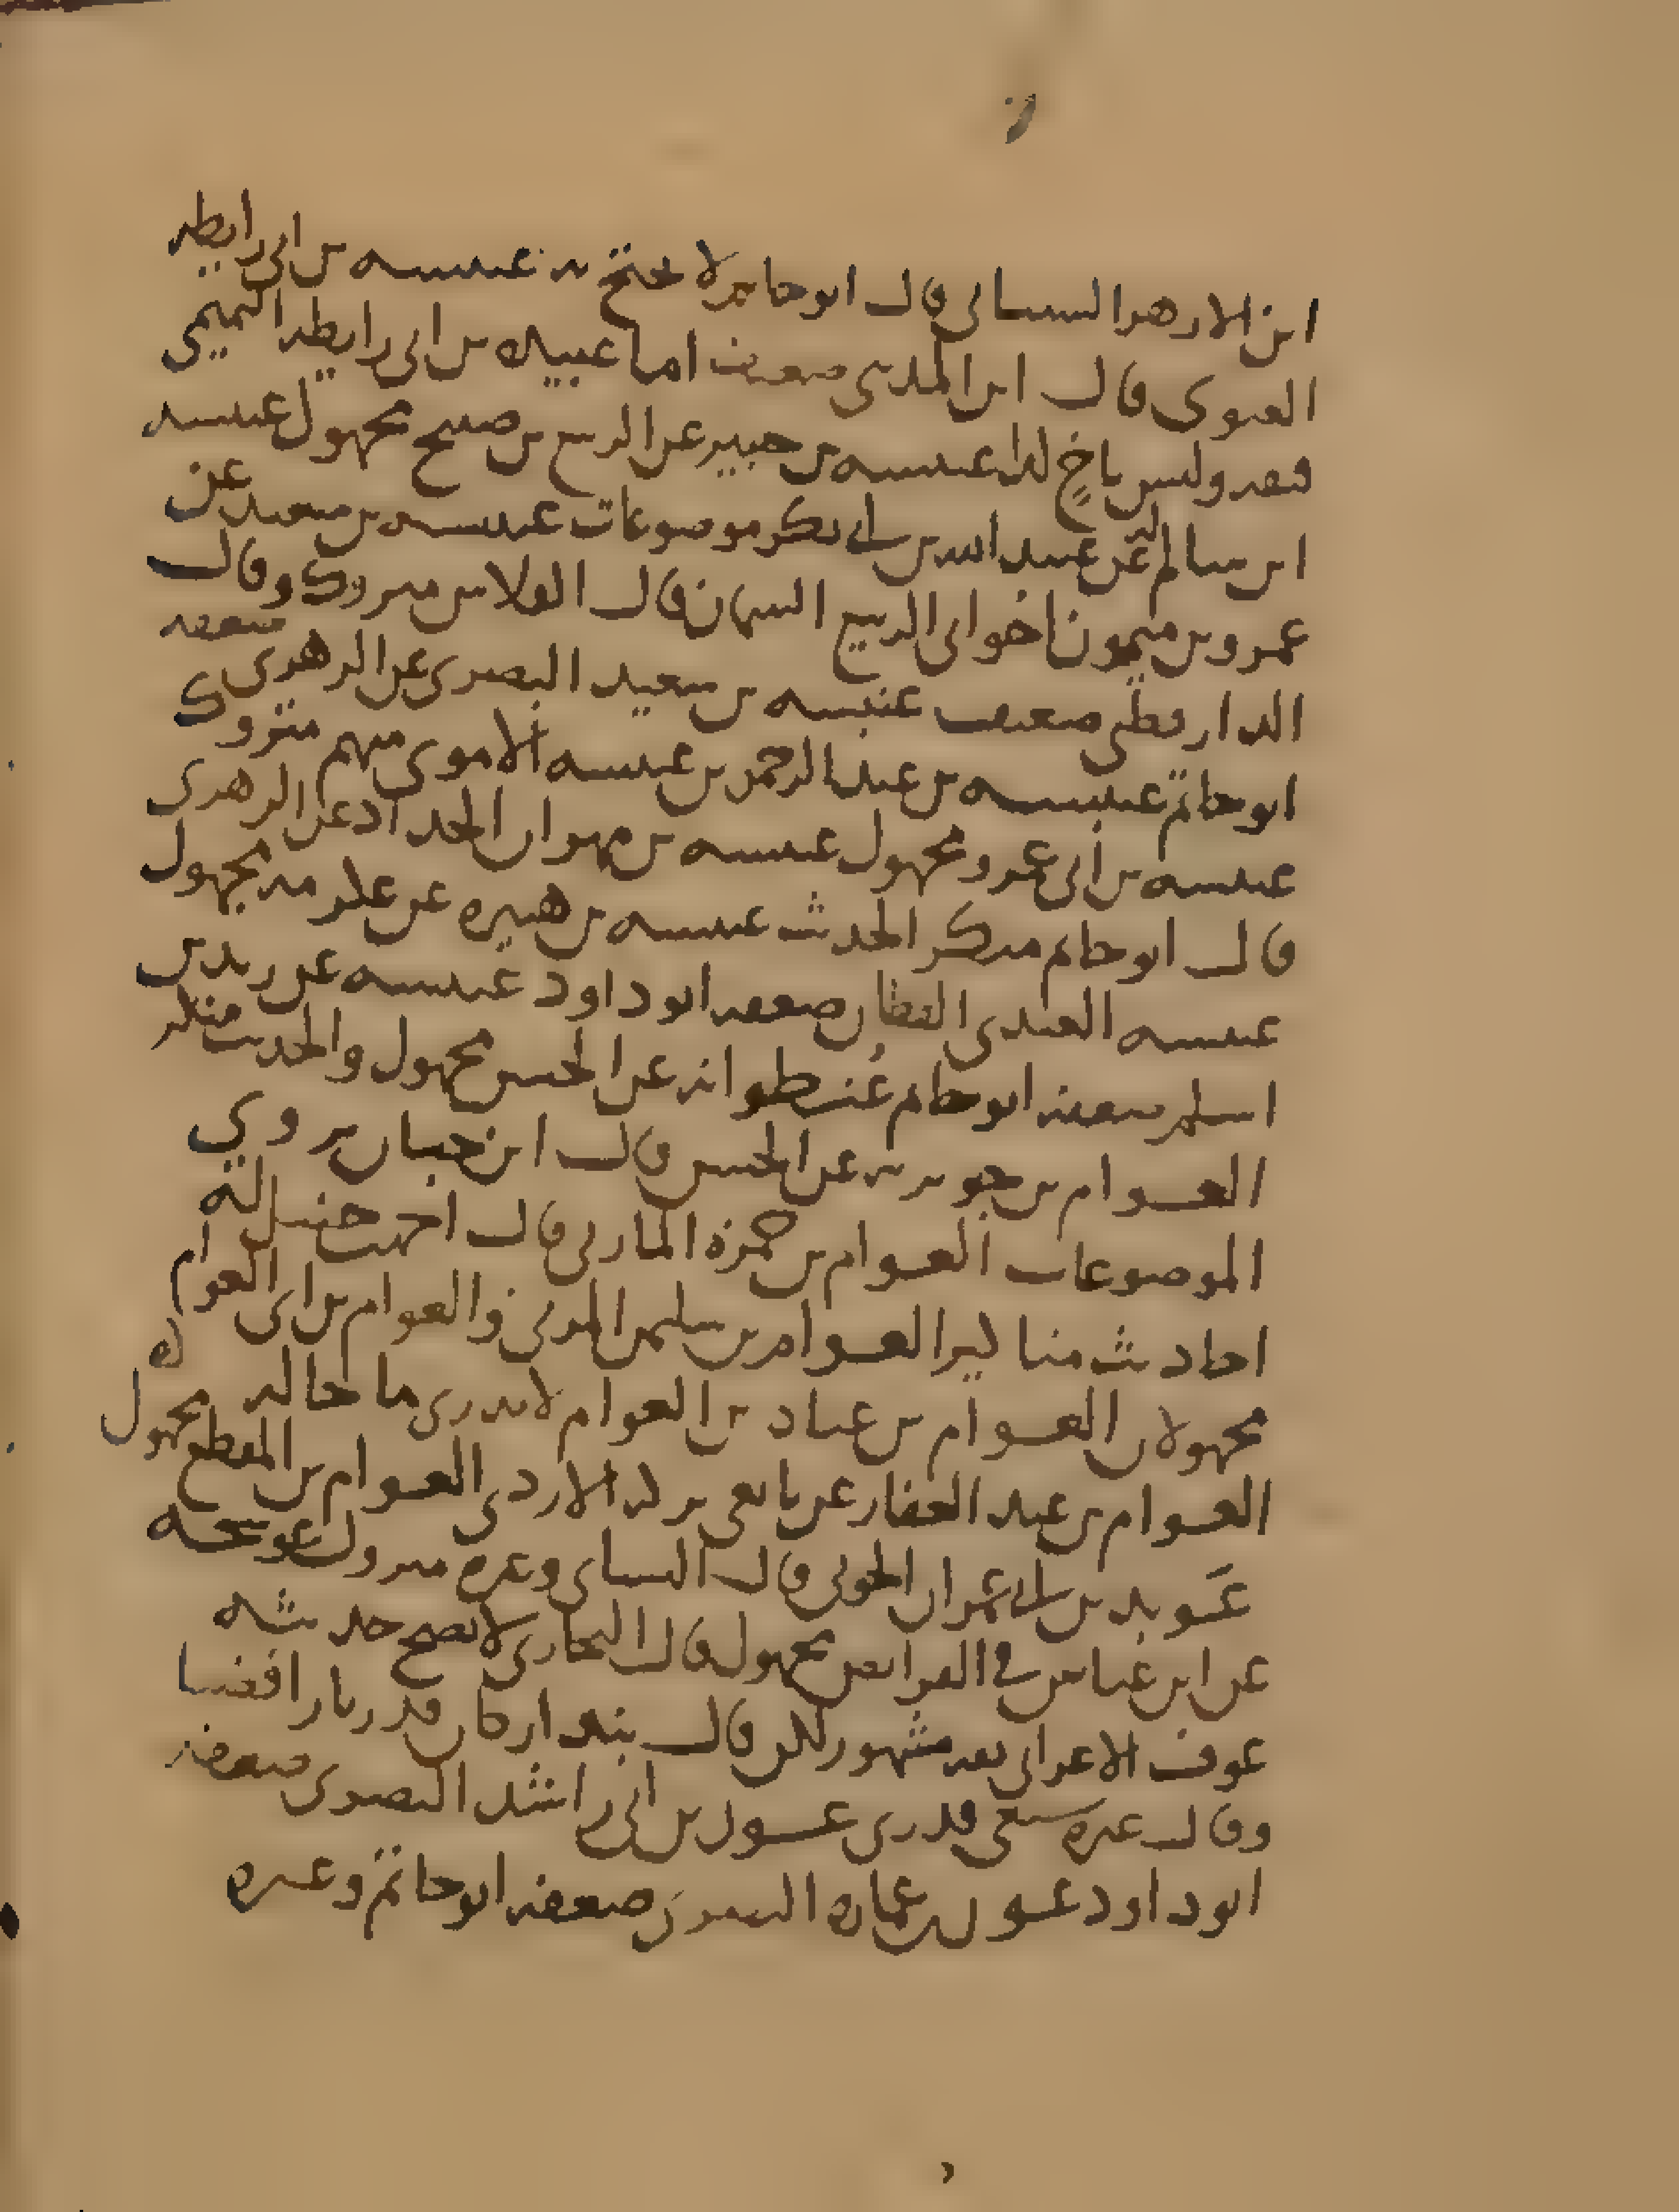 ابن الازهر الشيباني قال ابو حاتم لا يحتج به عنبسه بن ابي رايطه
الغنوي قال ابن المديني ضعيف اما عبيده بن ابي رايطه التميمي
فثقه وليس باخٍ له عنبسه بن جبير عن الربيع بن صبيح مجهول عنبسه
ابن سالم له عن عبيد الله بن ابي بكر موضوعات عنبسه بن سعيد عن
عمرو بن ميمون اخو ابي الربيع السمان قال الفلاس متروك وقال
الدارقطني ضعيف عنبسه بن سعيد البصري عن الزهري ضعفه
ابو حاتم عنبسه بن عبد الرحمن بن عنبسه الاموي متهم متروك
عنبسه بن ابي عمرو مجهول عنبسه بن مهران الحداد عن الزهري
قال ابو حاتم منكر الحديث عنبسه بن هبيره عن عكرمه مجهول
عنبسه العبدي القطان ضعفه ابو داود عنبسه عن زيد بن
اسلم ضعفه ابو حاتم عُنطوانه عن الحسن مجهول والحديث منكر
العوام بن جويريه عن الحسن قال ابن حبان يروي
الموضوعات العوام بن حمزه المازني قال احمد بن حنبل له
احاديث مناكير العوام بن سليمن المزني والعوام بن ابي العوام
مجهولان العوام بن عباد بن العوام لا يدرى ما حاله
العوام بن عبد الغفار عن تابعي تركه الازدي العوام بن المقطع مجهول
عَوبد بن ابي عمران الجوني قال النسائي وغيره متروك عوسجه
عن ابن عباس في الفرايض مجهول قال البخاري لا يصح حديثه
عوف الاعرابي ثقه مشهور لكن قال بندار كان قدريا رافضيا
وقال غيره شيعي قدري عون بن ابي راشد البصري ضعفه
ابو داود عون بن عماره البصري ضعفه ابو حاتم وغيره